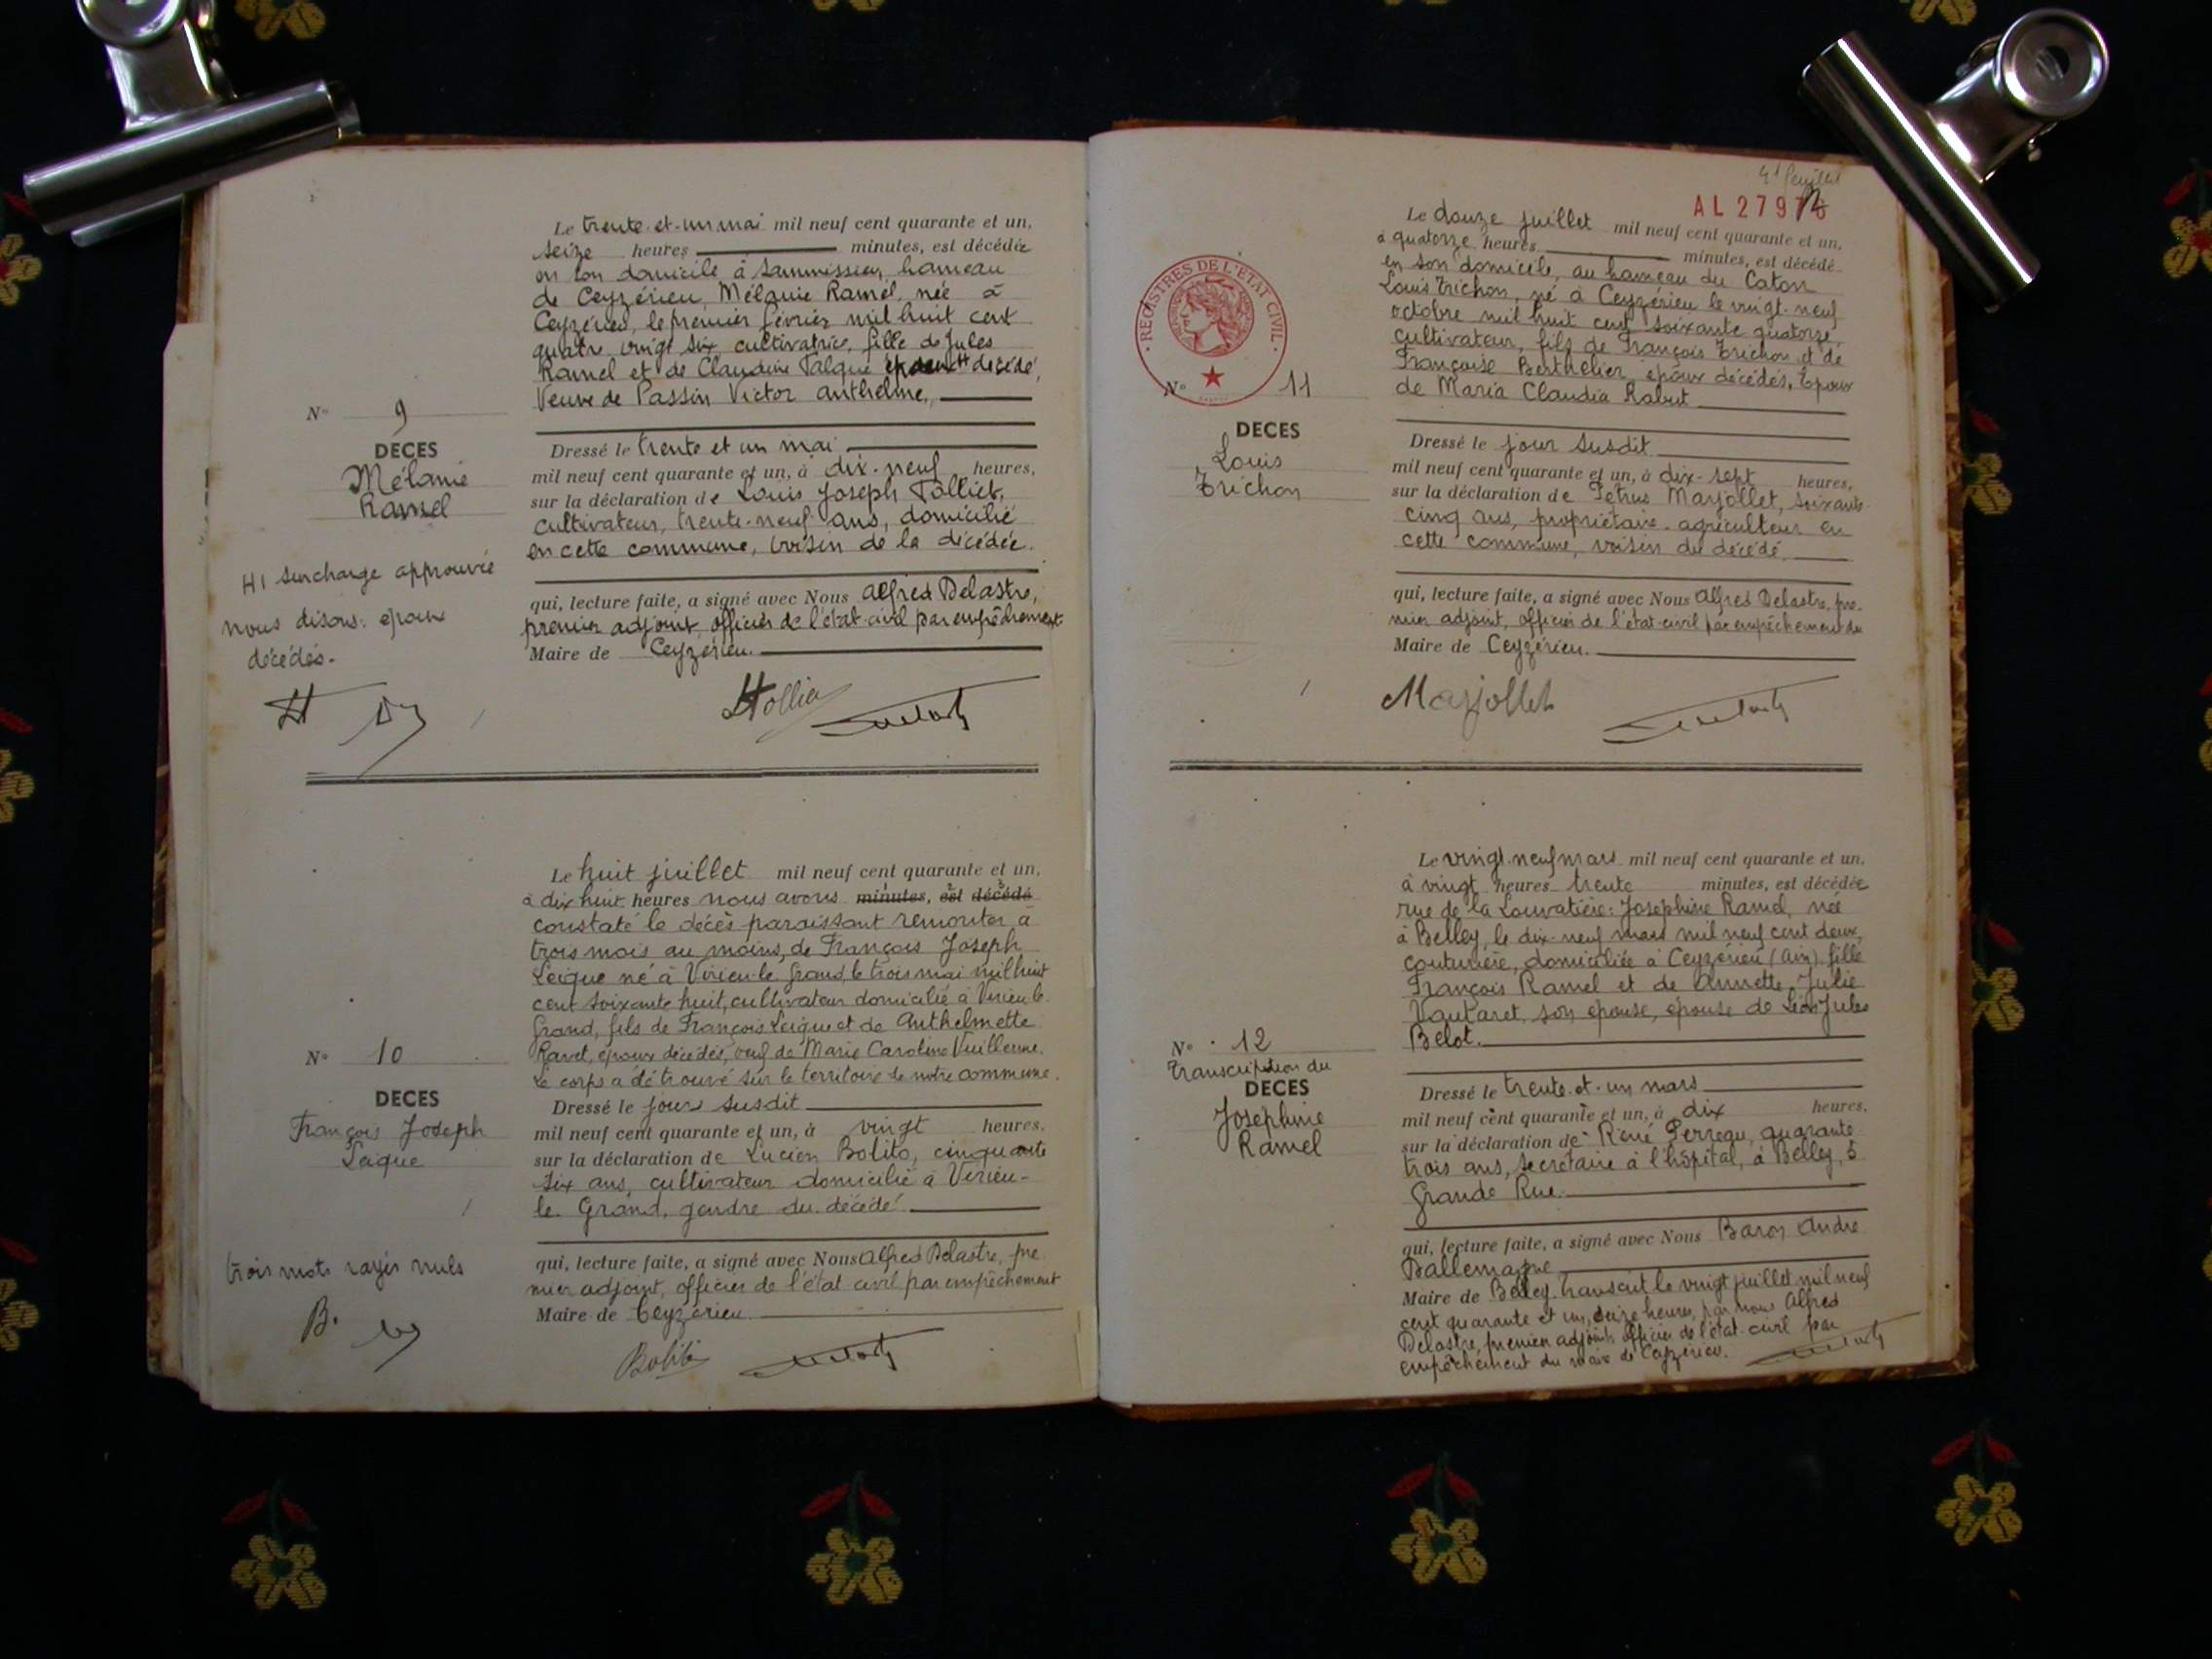 Le trente-et-un mai mil neuf cent quarante et un,
seize heures minutes, est décédée
en son domicile à Sammissieu, hameau
de Ceyzérieu, Mélanie Ramel, née à
Ceyzérieu, le premier février mil huit cent
quatre vingt six, cultivatrice, fille de Jules
Ramel et de Claudine décédé,
Veuve de Passin Victor Anthelme,
N° 9
DECES
Mélanie
Ramel
Dressé le trente et un mai
mil neuf cent quarante et un, à dix-neuf heures,
sur la déclaration de Louis Joseph Tolliet,
cultivateur, trente-neuf ans, domicilié
en cette commune, voisin de la décédée.
H1 surcharge approuvée
nous disons: époux
décédés.
qui, lecture faite, a signé avec Nous Alfred Delastre,
premier adjoint, officier de l'état-civil par empêchement
Maire de Ceyzérieu.
Le huit juillet mil neuf cent quarante et un,
à dix huit heures nous avons minutes, est décédé
constaté le décès paraissant remonter à
trois mois au moins, de François Joseph
Leique né à Virieu-le-Grand, le trois mai mil huit
cent soixante huit, cultivateur domicilié à Virieu-le-
Grand, fils de François Leique et de Anthelmette
Ravet, époux décédés, veuf de Marie Caroline Vuillerme.
Le corps a été trouvé sur le territoire de notre commune.
N° 10
DECES
François Joseph
Leique
Dressé le jour susdit
mil neuf cent quarante et un, à vingt heures,
sur la déclaration de Lucien Bolito, cinquante
six ans, cultivateur domicilié à Virieu-
le-Grand, gendre du décédé.
trois mots rayés nuls
B.
qui, lecture faite, a signé avec Nous Alfred Delastre, pre
mier adjoint, officier de l'état-civil par empêchement
Maire de Ceyzérieu.
Bolito
4e feuillet
AL 2797
Le douze juillet mil neuf cent quarante et un,
à quatorze heures minutes, est décédé
en son domicile, au hameau du Caton
Louis Trichon, né à Ceyzérieu le vingt-neuf
octobre mil huit cent soixante quatorze,
cultivateur, fils de François Trichon et de
Françoise Berthelier, époux décédés. Epoux
de Maria Claudia Rabut
REGISTRES DE L'ETAT CIVIL
N° 11
DECES
Louis
Trichon
Dressé le jour susdit
mil neuf cent quarante et un, à dix-sept heures,
sur la déclaration de Petrus Marjollet, soixante
cinq ans, propriétaire-agriculteur en
cette commune, voisin du décédé.
qui, lecture faite, a signé avec Nous Alfred Delastre, pre-
mier adjoint, officier de l'état-civil par empêchement du
Maire de Ceyzérieu.
Marjollet
Le vingt-neuf mars mil neuf cent quarante et un,
à vingt heures trente minutes, est décédée
rue de la Louvatière: Joséphine Ramel, née
à Belley, le dix-neuf mars mil neuf cent deux,
couturière, domiciliée à Ceyzérieu (Ain), fille
François Ramel et de Annette Julie
Vautaret, son épouse, épouse de Léon Jules
Belot.
N° 12
Transcription du
DECES
Joséphine
Ramel
Dressé le trente-et-un mars
mil neuf cent quarante et un, à dix heures,
sur la déclaration de René Perreau, quarante
trois ans, secrétaire à l'hôpital, à Belley, 5
Grande Rue.
qui, lecture faite, a signé avec Nous Baron André
Dallemagne
Maire de Belley. Transcrit le vingt juillet mil neuf
cent quarante et un, seize heures, par nous Alfred
Delastre, premier adjoint, officier de l'état-civil par
empêchement du maire de Ceyzérieu.